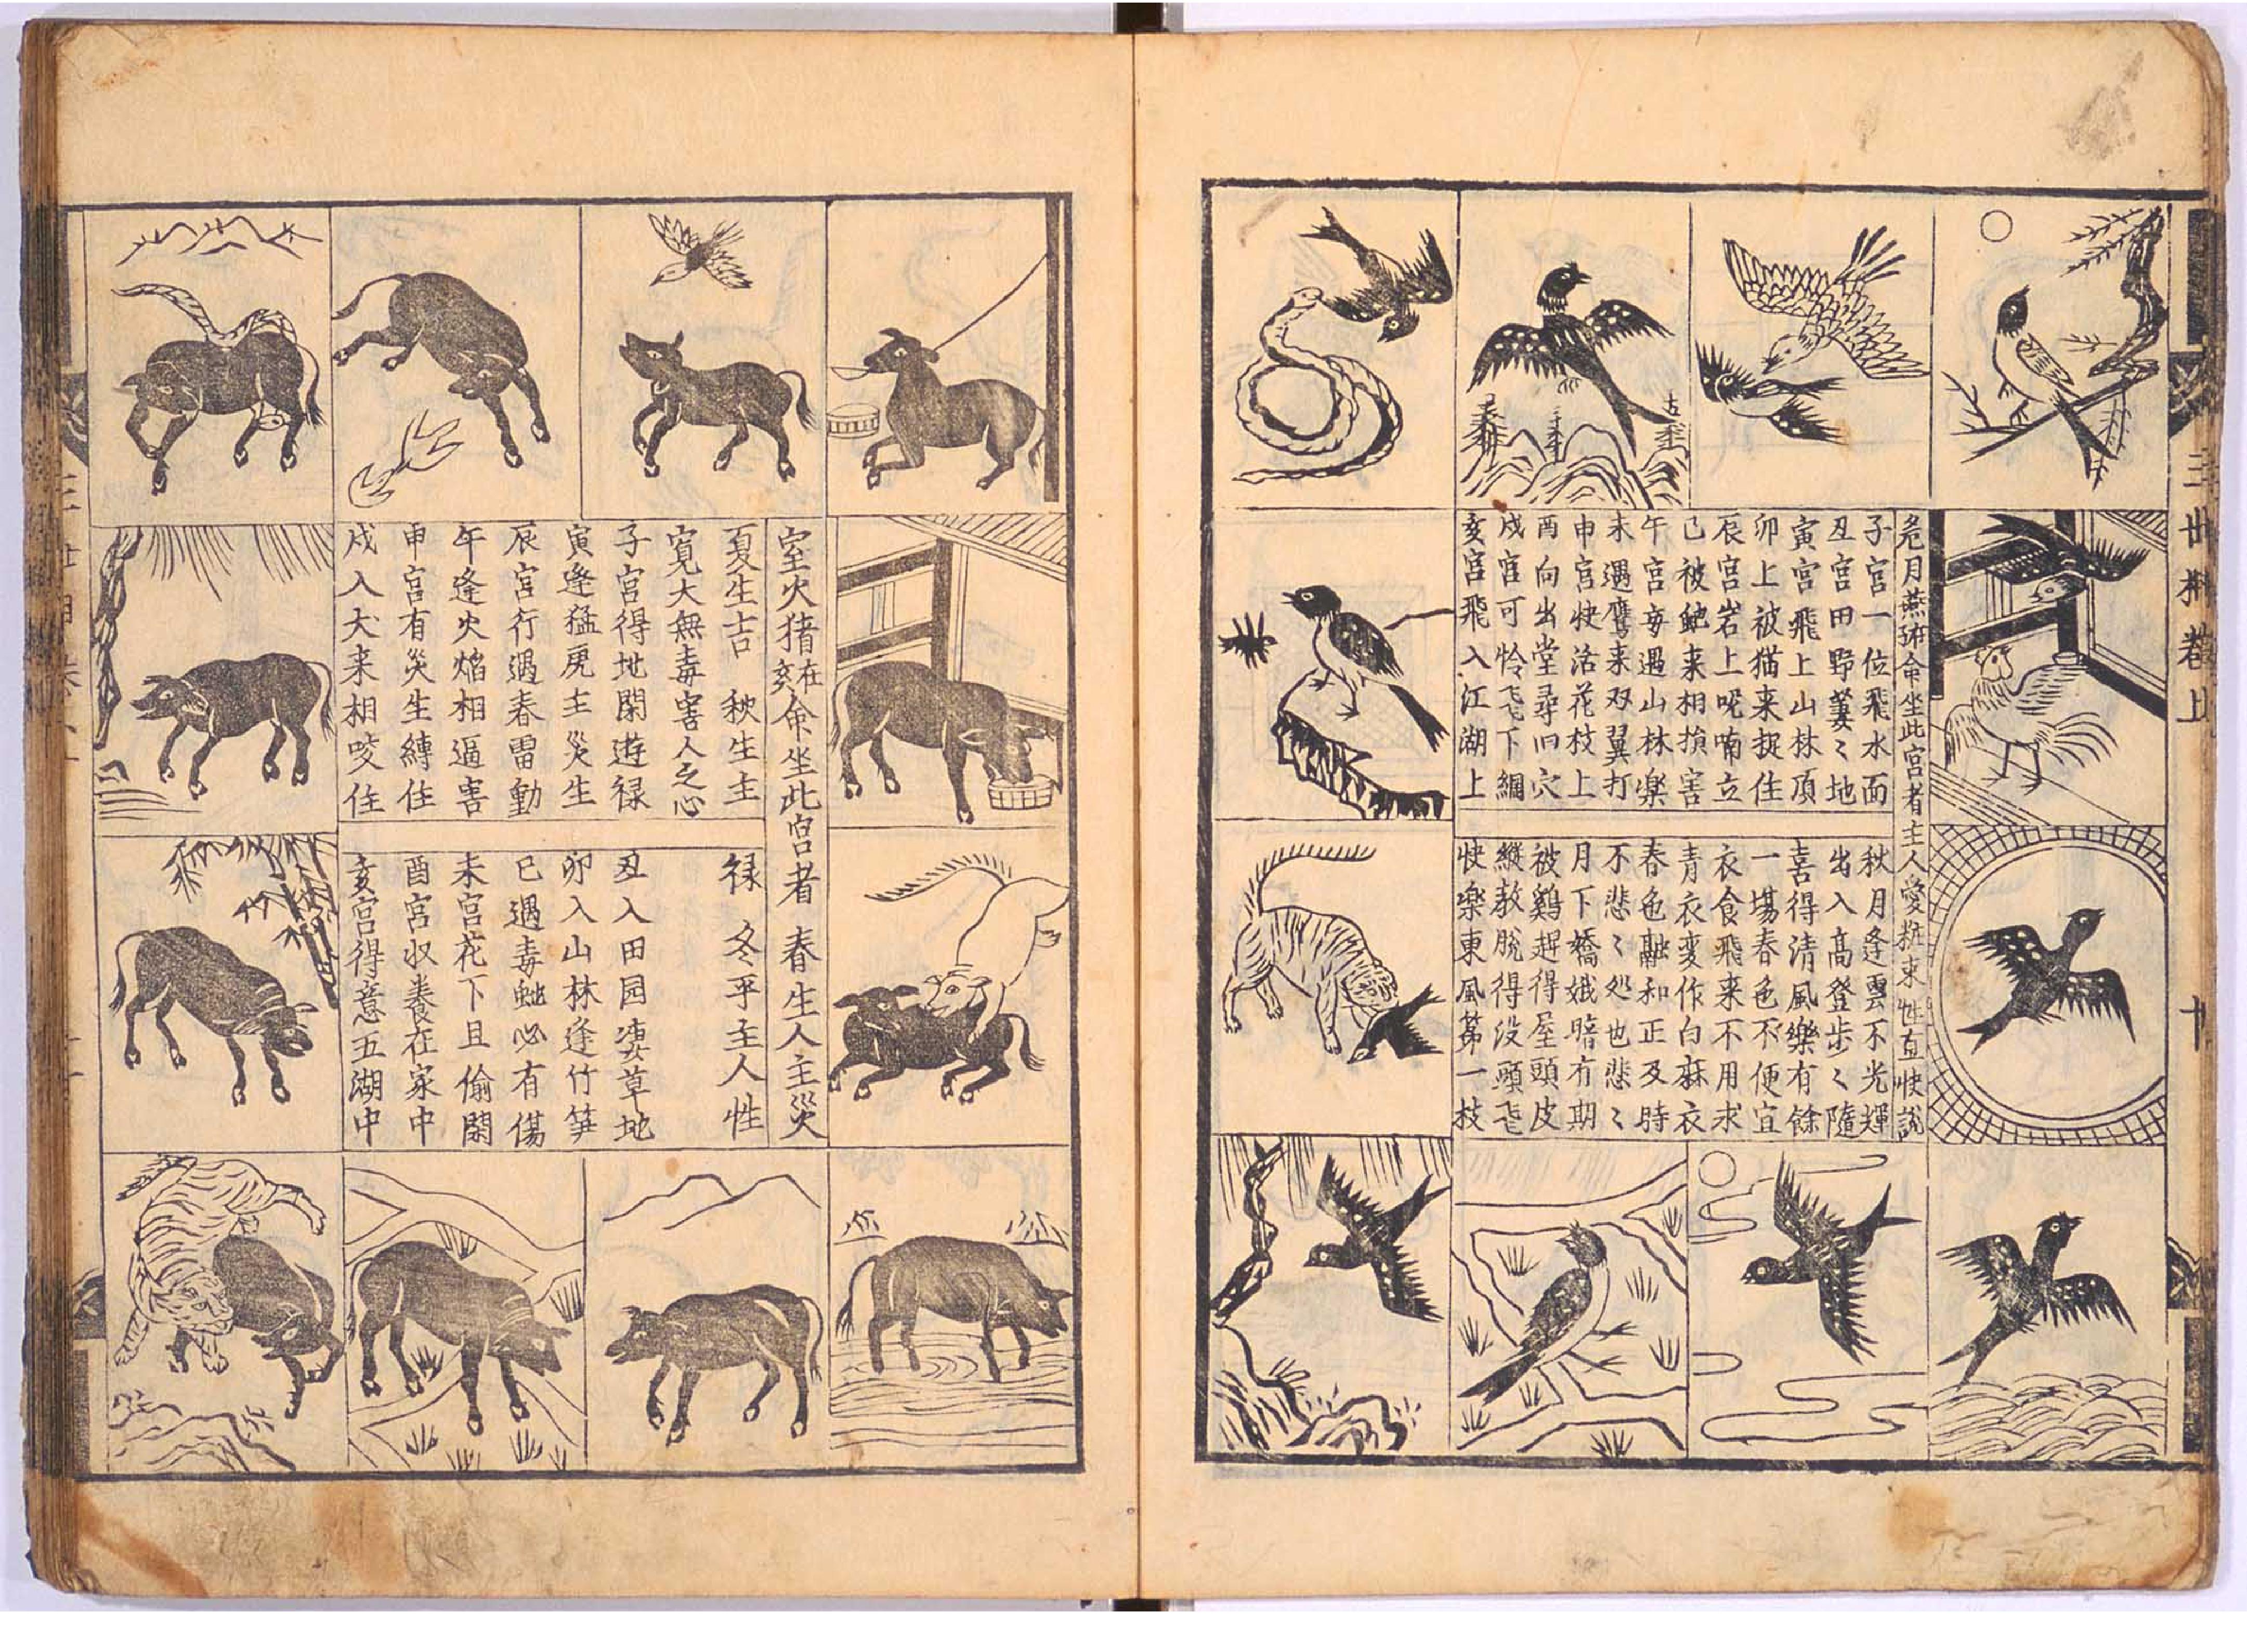 三世相卷上
十
危月燕班命坐此宮者主人愛粧束性直快説
子宮一位飛水面
丑宮田野萋〻地
寅宮飛上山林頂
卯上被猫来捉住
辰宮岩上呢喃立
巳被虵来相損害
午宮每遇山林樂
未遇鷹来双翼打
申宮快活花枝上
酉向出堂尋旧穴
戌宮可怜飞下網
亥宮飛入江湖上
秋月逢雲不光輝
出入高登步〻隨
喜得清風樂有餘
一場春色不便宜
衣食飛来不用求
青衣变作白麻衣
春色融和正及時
不悲〻処也悲〻
月下嬌娥暗有期
被鷄趕得屋頭皮
縱教脫得没頭飞
快樂東風第一枝
室火猪在亥命坐此宮者 春生人主災
夏生吉 秋生主
寬大無毒害人之心
子宮得地閑遊禄
寅逢猛虎主災生
辰宮行遇春雷動
午逢火焰相逼害
申宮有災生縛住
戌入犬来相咬住
禄 冬平主人性
丑入田园凄草地
卯入山林逢竹笋
巳遇毒虵必有傷
未宮花下且偷閑
酉宮収養在家中
亥宮得意五湖中